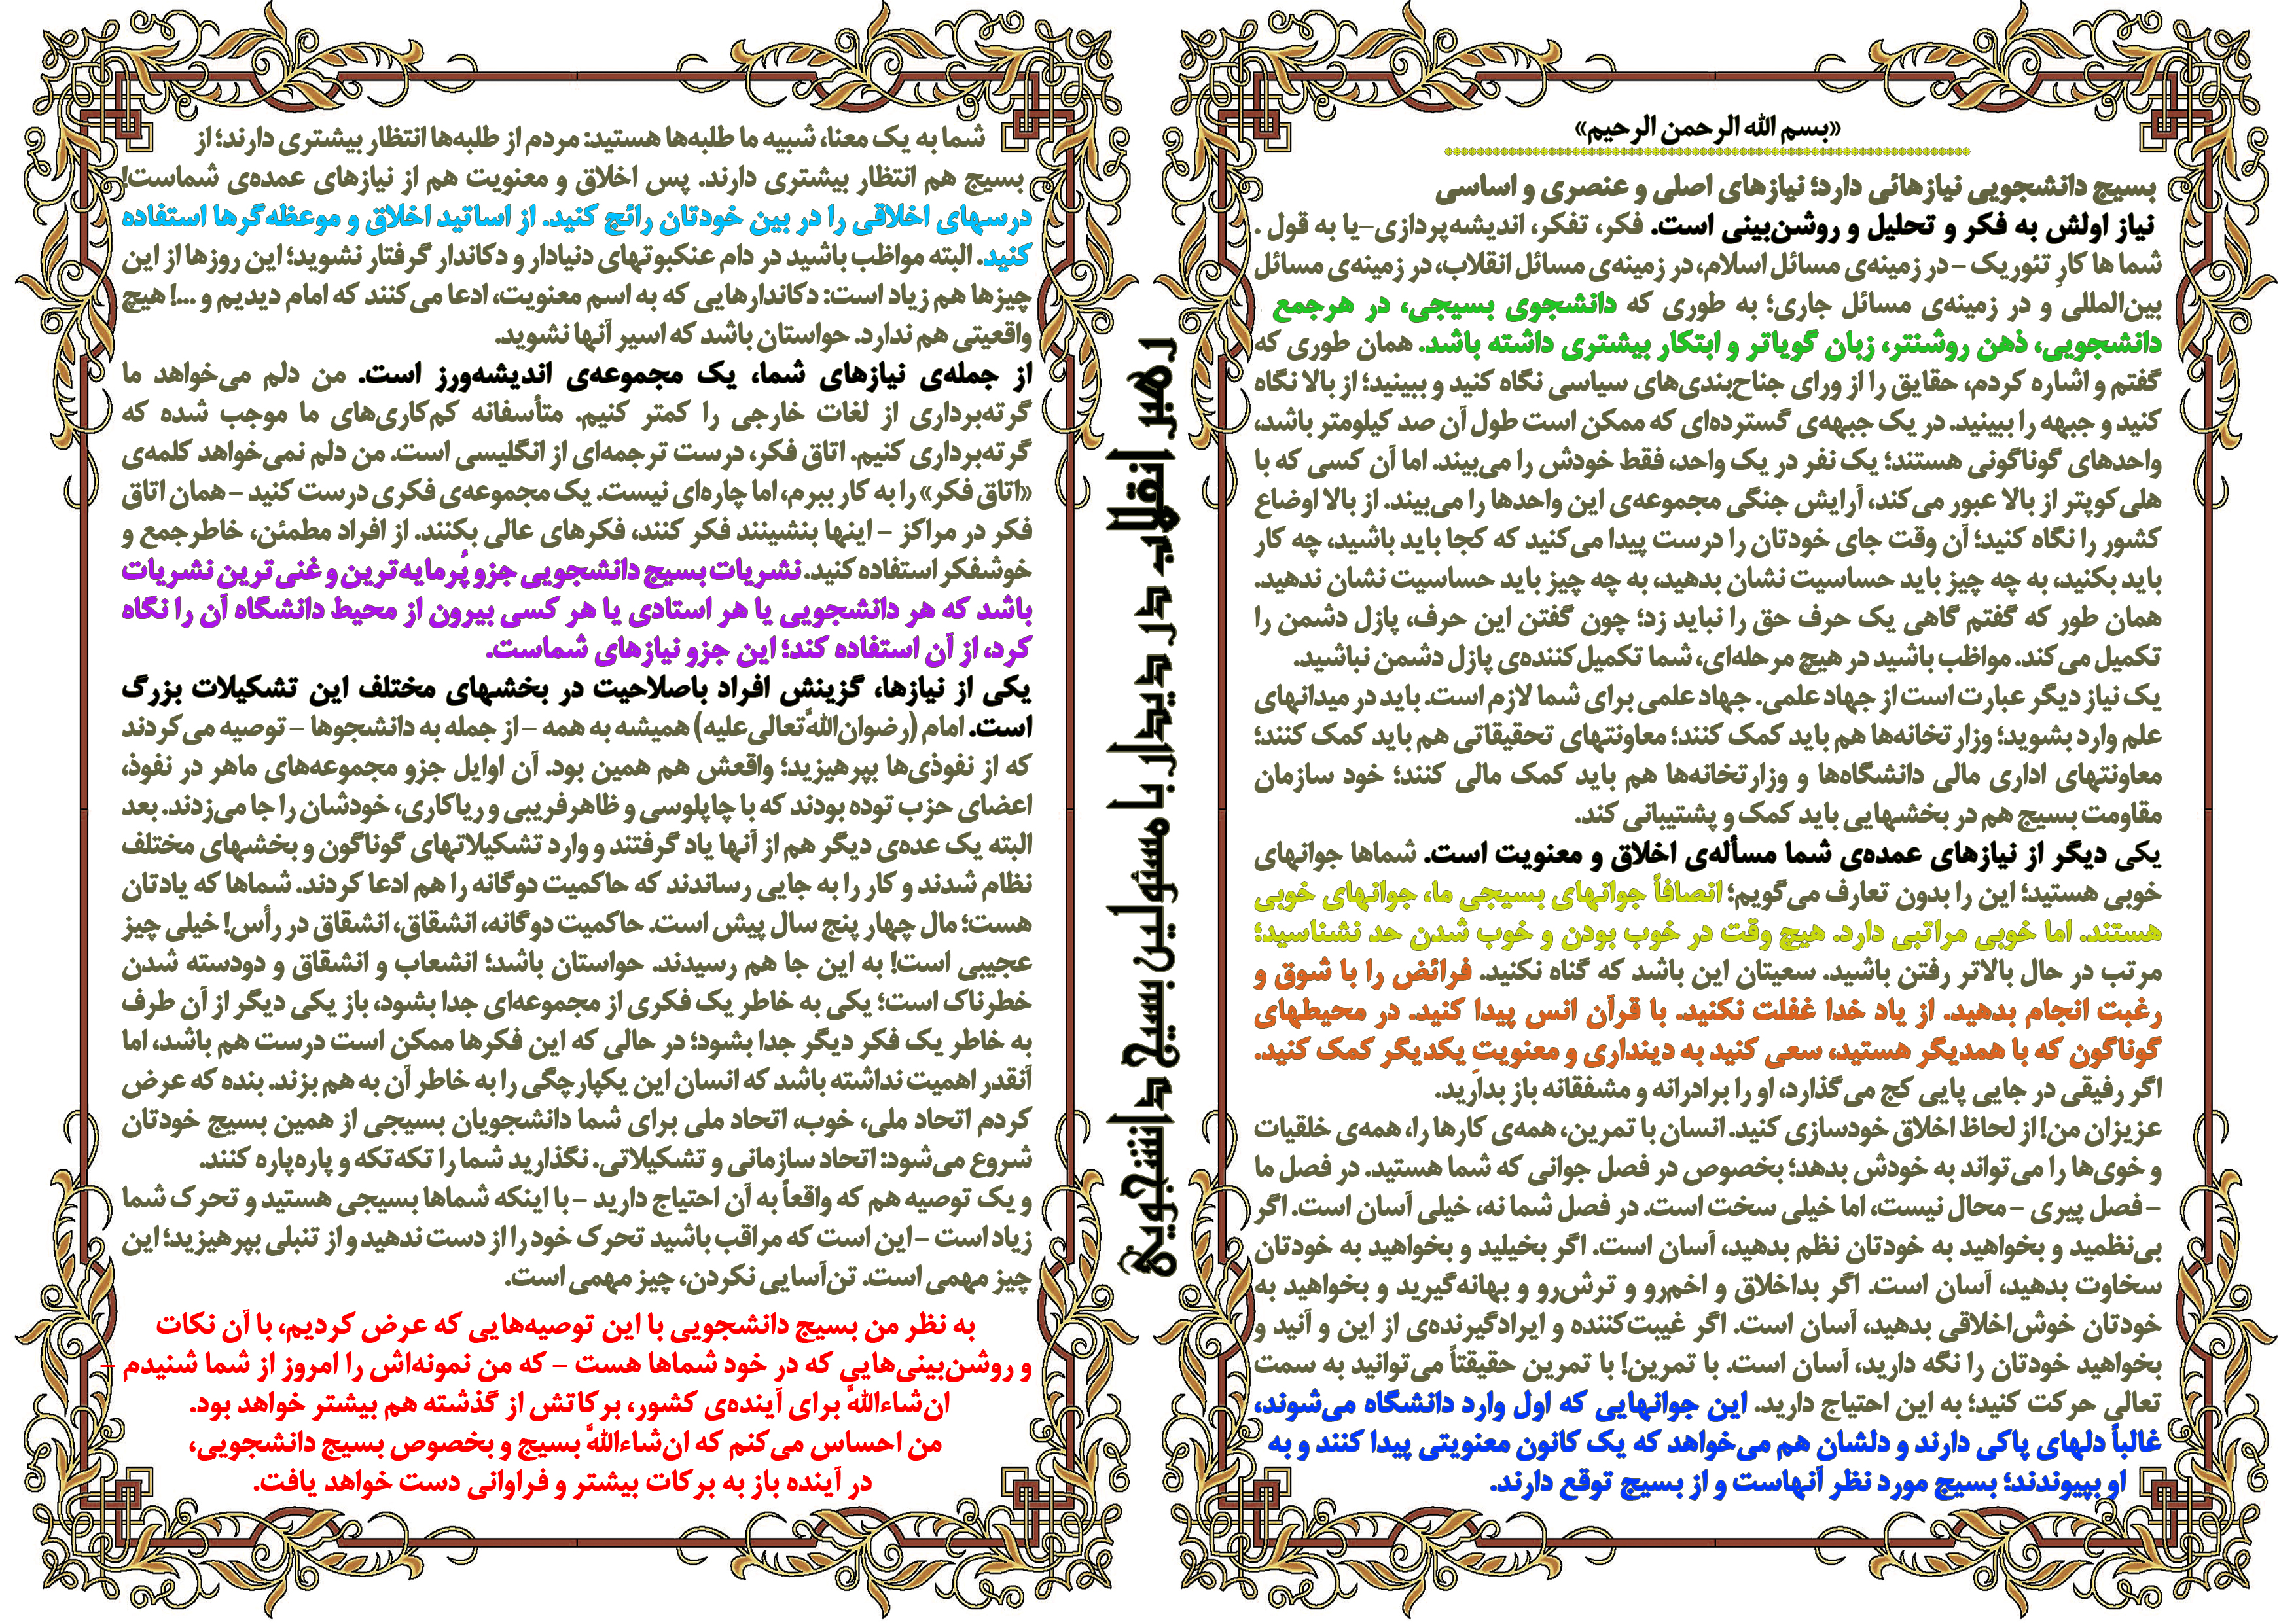 «بسم الله الرحمن الرحیم»
بسیج دانشجویی نیازهائی دارد؛ نیازهای اصلی و عنصری و اساسی
نیاز اولش به فکر و تحلیل و روشن‌بینی است. فکر، تفکر، اندیشه‌پردازی-یا به قول .
شما ها کارِ تئوریک – در زمینه‌ی مسائل اسلام، در زمینه‌ی مسائل انقلاب، در زمینه‌ی مسائل
بین‌المللی و در زمینه‌ی مسائل جاری؛ به طوری که دانشجوی بسیجی، در هرجمع .
دانشجویی، ذهن روشنتر، زبان گویاتر و ابتکار بیشتری داشته باشد. همان طوری که
گفتم و اشاره کردم، حقایق را از ورای جناح‌بندی‌های سیاسی نگاه کنید و ببینید؛ از بالا نگاه
کنید و جبهه را ببینید. در یک جبهه‌ی گسترده‌ای که ممکن است طول آن صد کیلومتر باشد،
واحدهای گوناگونی هستند؛ یک نفر در یک واحد، فقط خودش را می‌بیند. اما آن کسی که با
هلی‌کوپتر از بالا عبور می‌کند، آرایش جنگی مجموعه‌ی این واحدها را می‌بیند. از بالا اوضاع
کشور را نگاه کنید؛ آن وقت جای خودتان را درست پیدا می‌کنید که کجا باید باشید، چه کار
باید بکنید، به چه چیز باید حساسیت نشان بدهید، به چه چیز باید حساسیت نشان ندهید.
همان طور که گفتم گاهی یک حرف حق را نباید زد؛ چون گفتن این حرف، پازل دشمن را
تکمیل می‌کند. مواظب باشید در هیچ مرحله‌ای، شما تکمیل‌کننده‌ی پازل دشمن نباشید.
یک نیاز دیگر عبارت است از جهاد علمی. جهاد علمی برای شما لازم است. باید در میدانهای
علم وارد بشوید؛ وزارتخانه‌ها هم باید کمک کنند؛ معاونتهای تحقیقاتی هم باید کمک کنند؛
معاونتهای اداری مالی دانشگاه‌ها و وزارتخانه‌ها هم باید کمک مالی کنند؛ خود سازمان
مقاومت بسیج هم در بخشهایی باید کمک و پشتیبانی کند.
یکی دیگر از نیازهای عمده‌ی شما مسأله‌ی اخلاق و معنویت است. شماها جوانهای
خوبی هستید؛ این را بدون تعارف می‌گویم؛ انصافاً جوانهای بسیجی ما، جوانهای خوبی
هستند. اما خوبی مراتبی دارد. هیچ وقت در خوب بودن و خوب شدن حد نشناسید؛
مرتب در حال بالاتر رفتن باشید. سعیتان این باشد که گناه نکنید. فرائض را با شوق و
رغبت انجام بدهید. از یاد خدا غفلت نکنید. با قرآن انس پیدا کنید. در محیطهای
گوناگون که با همدیگر هستید، سعی کنید به دینداری و معنویتِ یکدیگر کمک کنید.
اگر رفیقی در جایی پایی کج می‌گذارد، او را برادرانه و مشفقانه باز بدارید.
عزیزان من! از لحاظ اخلاق خودسازی کنید. انسان با تمرین، همه‌ی کارها را، همه‌ی خلقیات
و خوی‌ها را می‌تواند به خودش بدهد؛ بخصوص در فصل جوانی که شما هستید. در فصل ما
– فصل پیری – محال نیست، اما خیلی سخت است. در فصل شما نه، خیلی آسان است. اگر
بی‌نظمید و بخواهید به خودتان نظم بدهید، آسان است. اگر بخیلید و بخواهید به خودتان
سخاوت بدهید، آسان است. اگر بداخلاق و اخم‌رو و ترش‌رو و بهانه‌گیرید و بخواهید به
خودتان خوش‌اخلاقی بدهید، آسان است. اگر غیبت‌کننده و ایرادگیرنده‌ی از این و آنید و
بخواهید خودتان را نگه دارید، آسان است. با تمرین! با تمرین حقیقتاً می‌توانید به سمت
تعالی حرکت کنید؛ به این احتیاج دارید. این جوانهایی که اول وارد دانشگاه می‌شوند،
غالباً دلهای پاکی دارند و دلشان هم می‌خواهد که یک کانون معنویتی پیدا کنند و به
او بپیوندند؛ بسیج مورد نظر آنهاست و از بسیج توقع دارند.
رهبر انقلاب در دیدار با مسئولین بسیج دانشجویی
شما به یک معنا، شبیه ما طلبه‌ها هستید: مردم از طلبه‌ها انتظار بیشتری دارند؛ از
بسیج هم انتظار بیشتری دارند. پس اخلاق و معنویت هم از نیازهای عمده‌ی شماست!
درسهای اخلاقی را در بین خودتان رائج کنید. از اساتید اخلاق و موعظه‌گرها استفاده
کنید. البته مواظب باشید در دام عنکبوتهای دنیادار و دکاندار گرفتار نشوید؛ این روزها از این
چیزها هم زیاد است: دکاندارهایی که به اسم معنویت، ادعا می‌کنند که امام دیدیم و ...! هیچ
واقعیتی هم ندارد. حواستان باشد که اسیر آنها نشوید.
از جمله‌ی نیازهای شما، یک مجموعه‌ی اندیشه‌ورز است. من دلم می‌خواهد ما
گرته‌برداری از لغات خارجی را کمتر کنیم. متأسفانه کم‌کاری‌های ما موجب شده که
گرته‌برداری کنیم. اتاق فکر، درست ترجمه‌ای از انگلیسی است. من دلم نمی‌خواهد کلمه‌ی
«اتاق فکر» را به کار ببرم، اما چاره‌ای نیست. یک مجموعه‌ی فکری درست کنید – همان اتاق
فکر در مراکز – اینها بنشینند فکر کنند، فکرهای عالی بکنند. از افراد مطمئن، خاطرجمع و
خوشفکر استفاده کنید. نشریات بسیج دانشجویی جزو پُرمایه‌ترین و غنی‌ترین نشریات
باشد که هر دانشجویی یا هر استادی یا هر کسی بیرون از محیط دانشگاه آن را نگاه
کرد، از آن استفاده کند؛ این جزو نیازهای شماست.
یکی از نیازها، گزینش افراد باصلاحیت در بخشهای مختلف این تشکیلات بزرگ
است. امام (رضوان‌اللَّه‌تعالی‌علیه) همیشه به همه – از جمله به دانشجوها – توصیه می‌کردند
که از نفوذی‌ها بپرهیزید؛ واقعش هم همین بود. آن اوایل جزو مجموعه‌های ماهر در نفوذ،
اعضای حزب توده بودند که با چاپلوسی و ظاهرفریبی و ریاکاری، خودشان را جا می‌زدند. بعد
البته یک عده‌ی دیگر هم از آنها یاد گرفتند و وارد تشکیلاتهای گوناگون و بخشهای مختلف
نظام شدند و کار را به جایی رساندند که حاکمیت دوگانه را هم ادعا کردند. شماها که یادتان
هست؛ مال چهار پنج سال پیش است. حاکمیت دوگانه، انشقاق، انشقاق در رأس! خیلی چیز
عجیبی است! به این جا هم رسیدند. حواستان باشد؛ انشعاب و انشقاق و دودسته شدن
خطرناک است؛ یکی به خاطر یک فکری از مجموعه‌ای جدا بشود، باز یکی دیگر از آن طرف
به خاطر یک فکر دیگر جدا بشود؛ در حالی که این فکرها ممکن است درست هم باشد، اما
آنقدر اهمیت نداشته باشد که انسان این یکپارچگی را به خاطر آن به هم بزند. بنده که عرض
کردم اتحاد ملی، خوب، اتحاد ملی برای شما دانشجویان بسیجی از همین بسیج خودتان
شروع می‌شود: اتحاد سازمانی و تشکیلاتی. نگذارید شما را تکه‌تکه و پاره‌پاره کنند.
و یک توصیه هم که واقعاً به آن احتیاج دارید – با اینکه شماها بسیجی هستید و تحرک شما
زیاد است – این است که مراقب باشید تحرک خود را از دست ندهید و از تنبلی بپرهیزید؛ این
چیز مهمی است. تن‌آسایی نکردن، چیز مهمی است.
به نظر من بسیج دانشجویی با این توصیه‌هایی که عرض کردیم، با آن نکات
و روشن‌بینی‌هایی که در خود شماها هست – که من نمونه‌اش را امروز از شما شنیدم –
ان‌شاءاللَّه برای آینده‌ی کشور، برکاتش از گذشته هم بیشتر خواهد بود.
من احساس می‌کنم که ان‌شاءاللَّه بسیج و بخصوص بسیج دانشجویی،
در آینده باز به برکات بیشتر و فراوانی دست خواهد یافت.